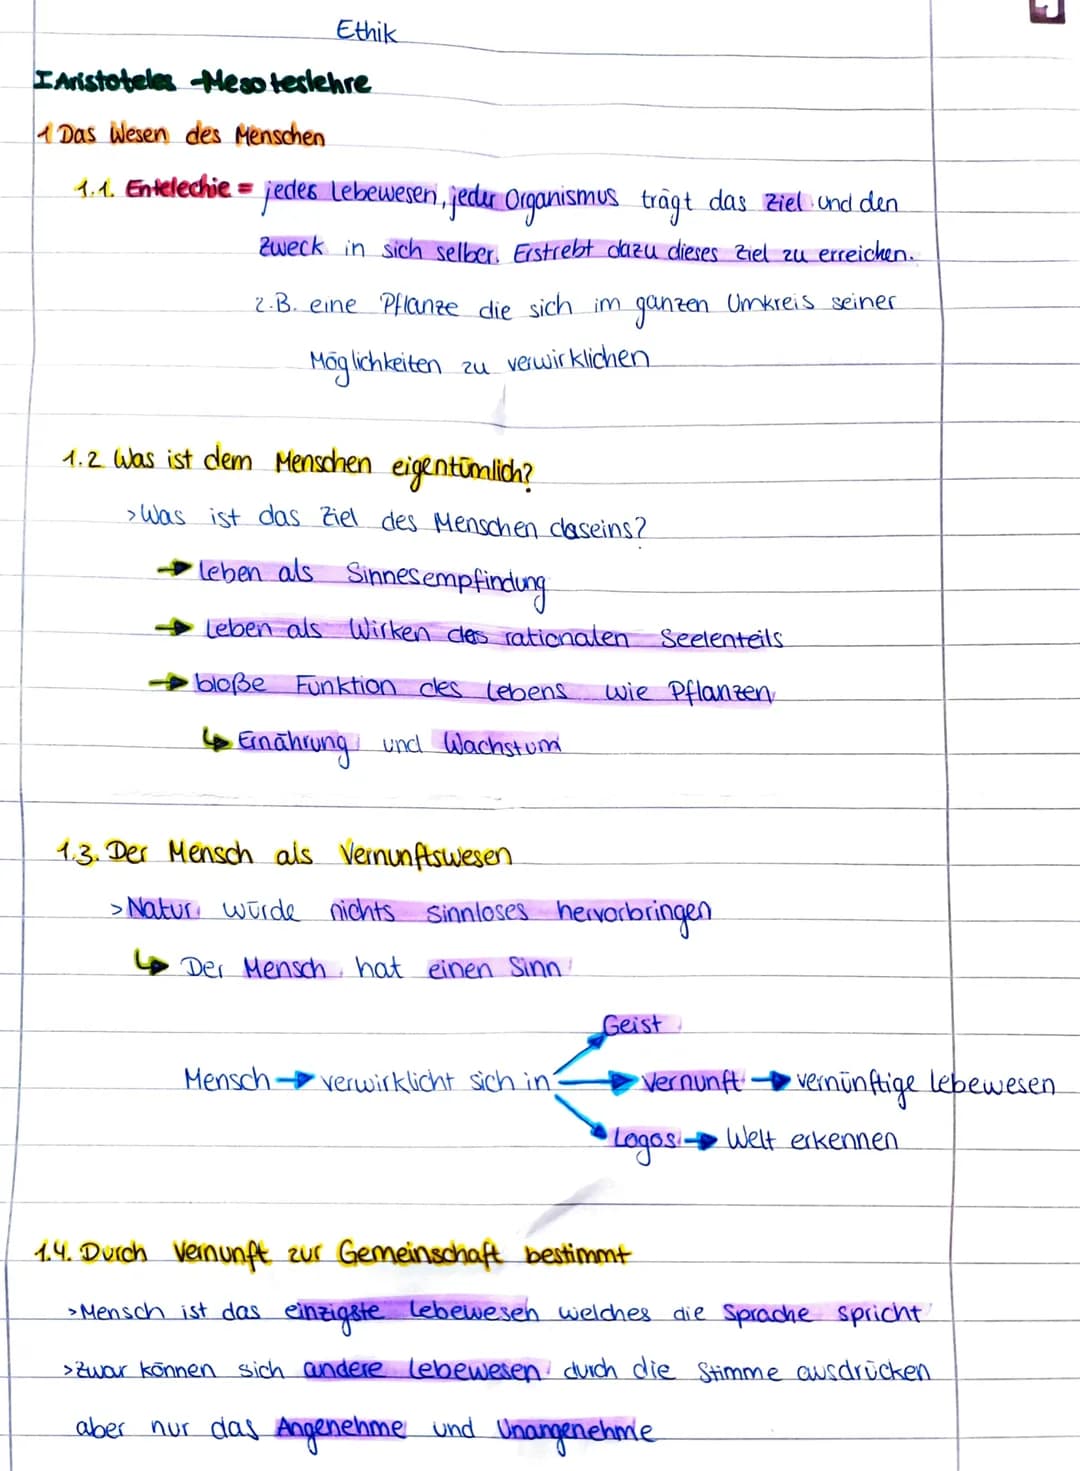 Ethik
I Aristoteles - Mesoteslehre
1 Das Wesen des Menschen
1.1. Entelechie = jedes Lebewesen, jeder Organismus trägt das Ziel und den
Zweck in sich selber. Erstrebt dazu dieses Ziel zu erreichen.
z.B. eine Pflanze die sich im ganzen Umkreis seiner
Möglichkeiten zu verwirklichen
1.2 Was ist dem Menschen eigentümlich?
>Was ist das Ziel des Menschen daseins?
→ Leben als Sinnesempfindung
→ Leben als Wirken des rationalen Seelenteils
→ bloße Funktion des Lebens wie Pflanzen
↳ Ernährung und Wachstum
1.3. Der Mensch als Vernunftswesen
>Natur würde nichts sinnloses hervorbringen
↳ Der Mensch hat einen Sinn
Geist
Mensch → verwirklicht sich in → Vernunft → vernünftige Lebewesen
Logos → Welt erkennen
1.4. Durch Vernunft zur Gemeinschaft bestimmt
>Mensch ist das einzigste Lebewesen welches die Sprache spricht
>Zwar können sich andere Lebewesen durch die Stimme ausdrücken
aber nur das Angenehme und Unangenehme